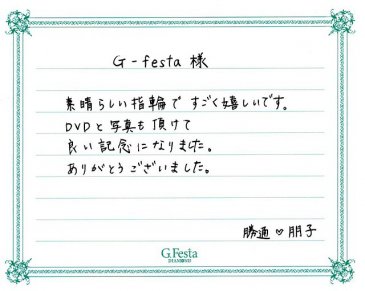 G-festa 様
素晴らしい指輪で すごく嬉しいです。
DVDと写真も頂けて
良い記念になりました。
ありがとうございました。
勝通♡朋子
G.Festa
DIAMOND